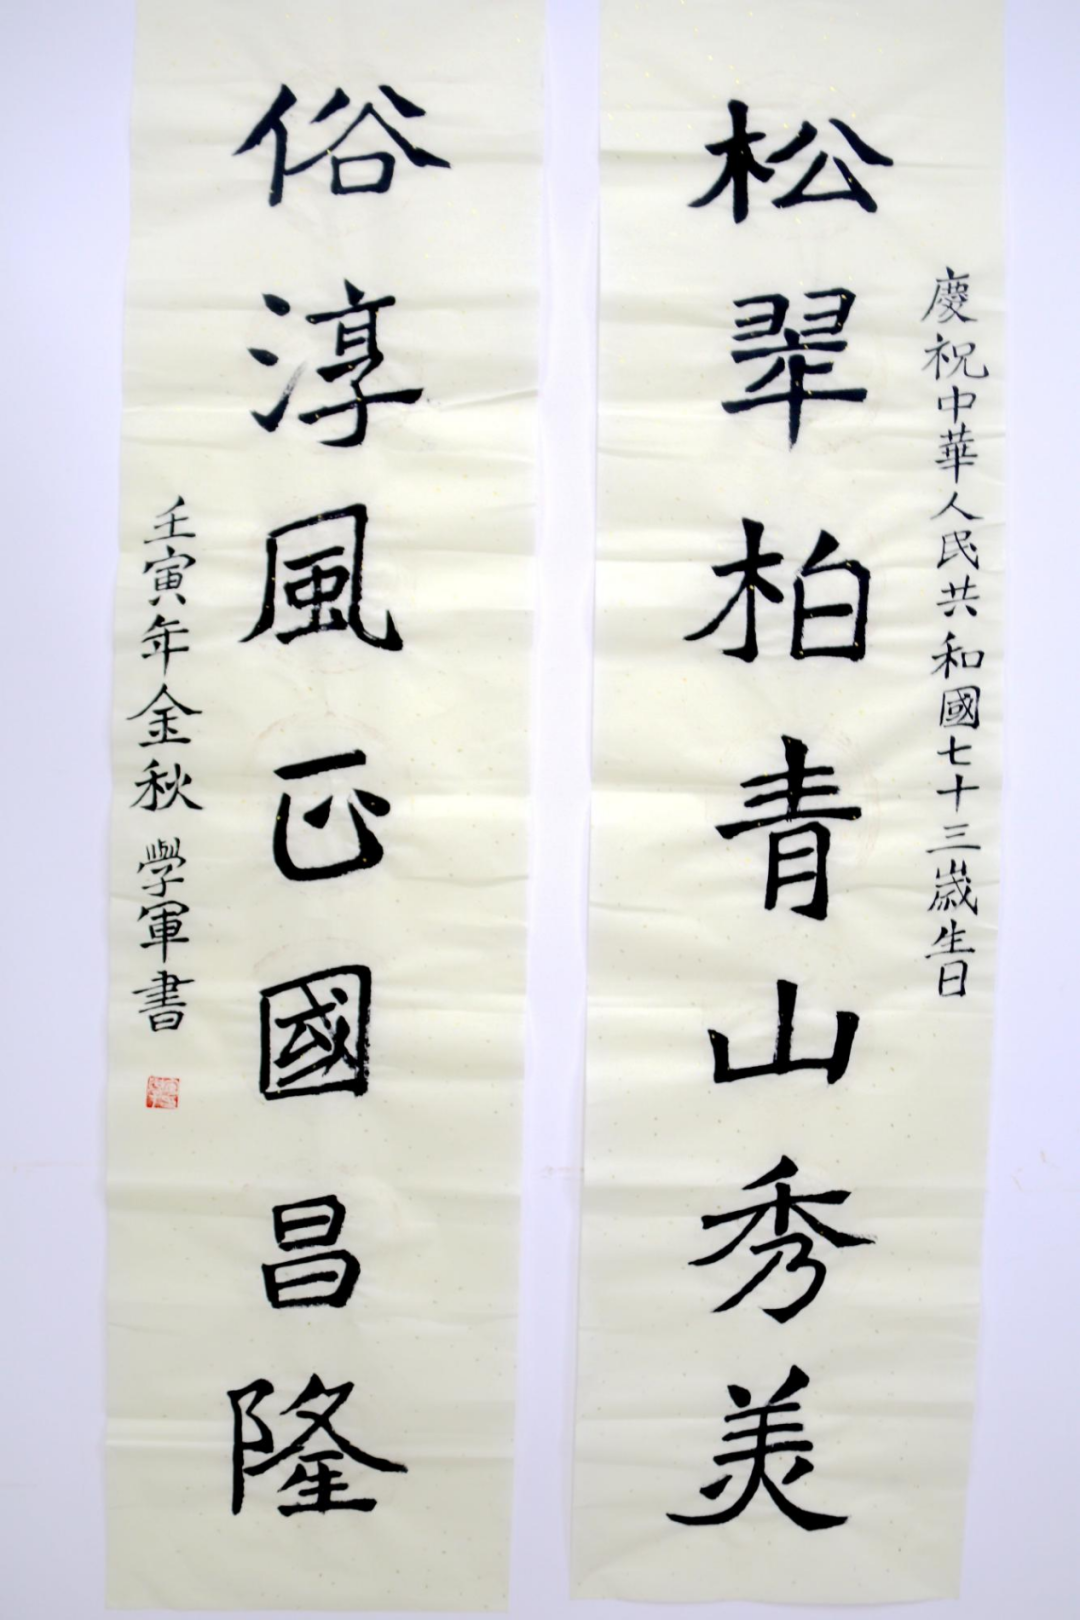 慶祝中華人民共和國七十三歲生日
松翠柏青山秀美
俗淳風正國昌隆
壬寅年金秋 學軍書